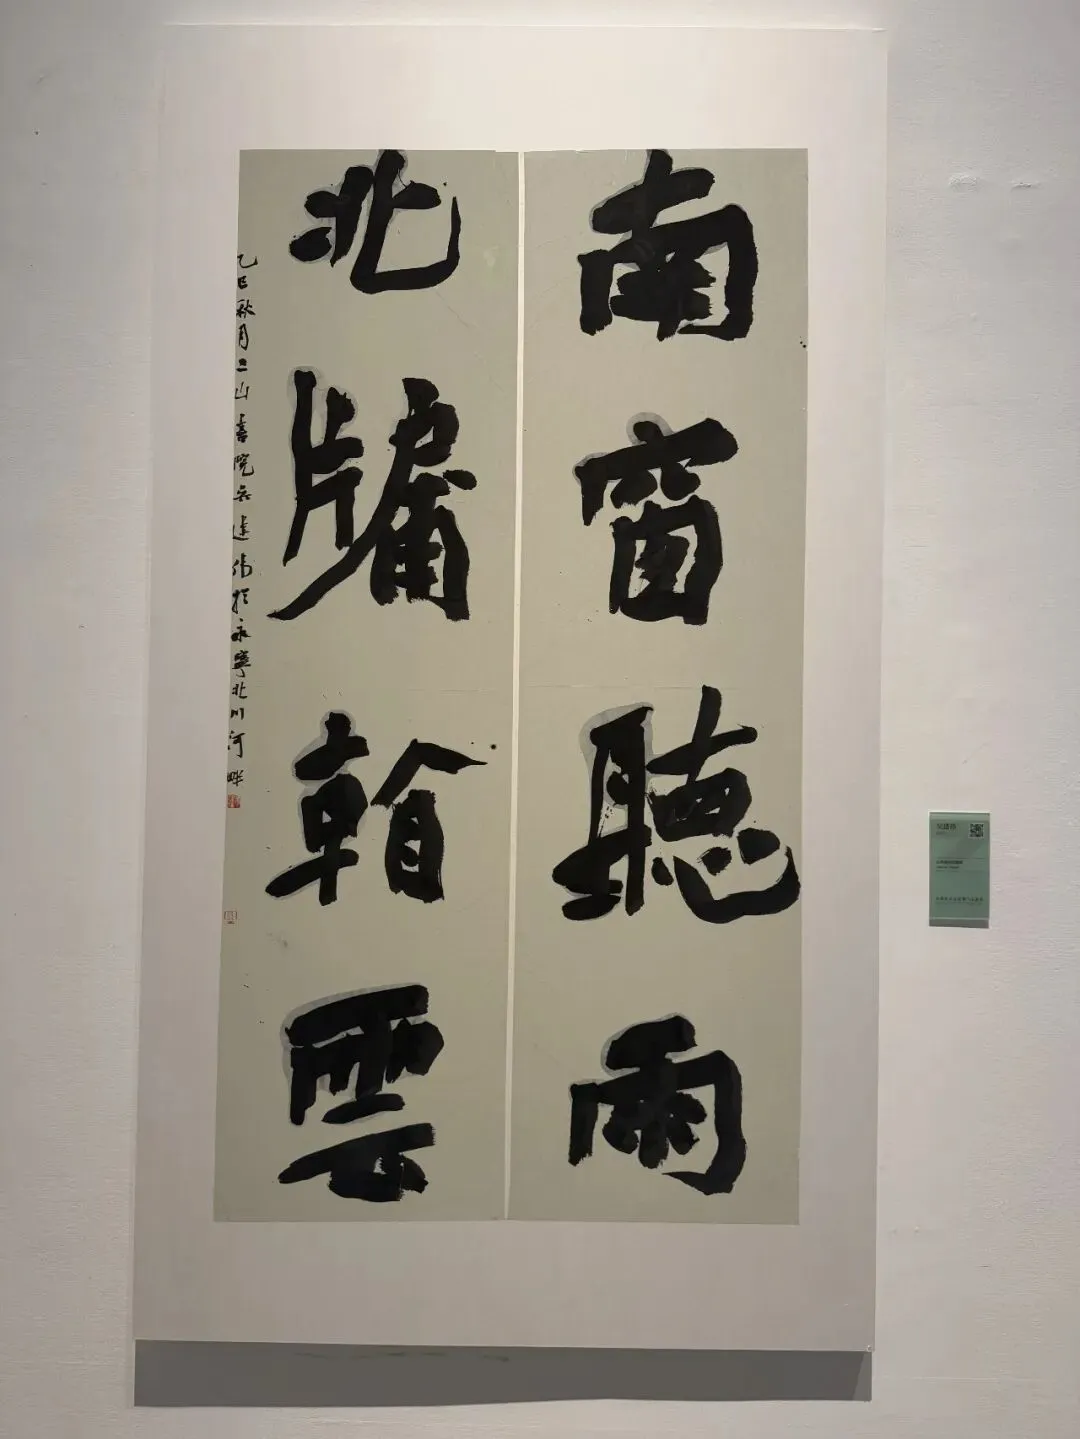 南窗聽雨
北牖翰雲
乙巳秋月二山書院吴建伟於永寧北川河畔